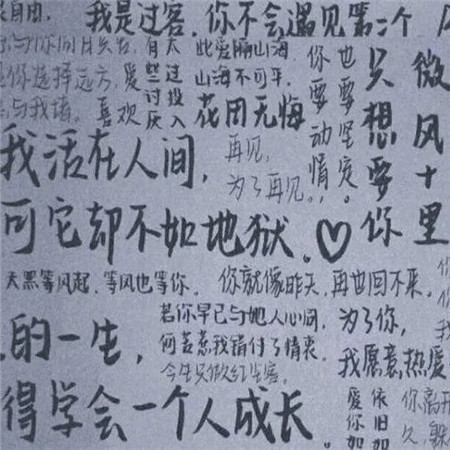 我是过客.你不会遇见第二个
自由.
你选择远方,爱
喜欢
有天
些过
讨投
厌入
此爱隔山海
山海不可平.
花用无悔
你要动情
也要坚定
只想要你
微风十里
再见,
为了再见.
我活在人间,
可它却不如地狱.♡
天黑等风起.等风也等你.
你就像昨天,再也回不来.
若你早已与她人心同,
何苦惹我错付了情衷.
今生只做红尘客.
为了你,
我愿意热爱
的一生,
得学会一个人成长.
爱你如
依旧如
你离开
久,